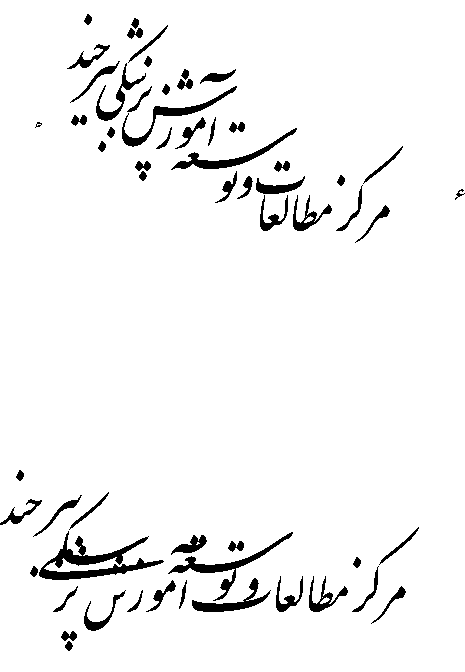 مرکز مطالعات و توسعه آموزش پزشکی بیرجند
مرکز مطالعات و توسعه آموزش پزشکی بیرجند